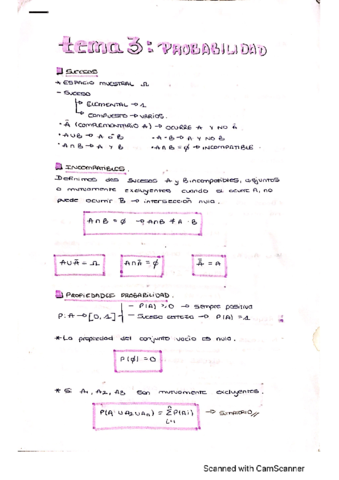 tema 3: PROBABILIDAD
SUCESOS
+ ESPACIO MUESTRAL Ω
- SUCESO
ELEMENTAL → 1
COMPUESTO → VARIOS.
• Ā (COMPLEMENTARIO A) → OCURRE A Y NO
• A∪B → A Ó B
• A-B → A Y NO B
• A∩B → A Y B
• A∩B = ∅ → INCOMPATIBLE.
INCOMPATIBLES.
Definimos dos sucesos A y B incompatibles,
o mutuamente excluyentes cuando si ocurre A, no
puede ocurrir B → intersección nula.
A∩B = ∅ → A∩B ≠ A · B
A∪Ā = Ω
A∩Ā = ∅
= A
PROPIEDADES PROBABILIDAD.
P(A) ≥ 0 → siempre positiva
P: A → [0, 1]
Suceso certeza → P(A) = 1
* La propiedad del conjunto vacío es nula.
P(∅) = 0
* Si A1, A2, A3 son mutuamente excluyentes.
P(A∪A2∪An) = Σ P(Ai)
i=1
Scanned with CamScanner